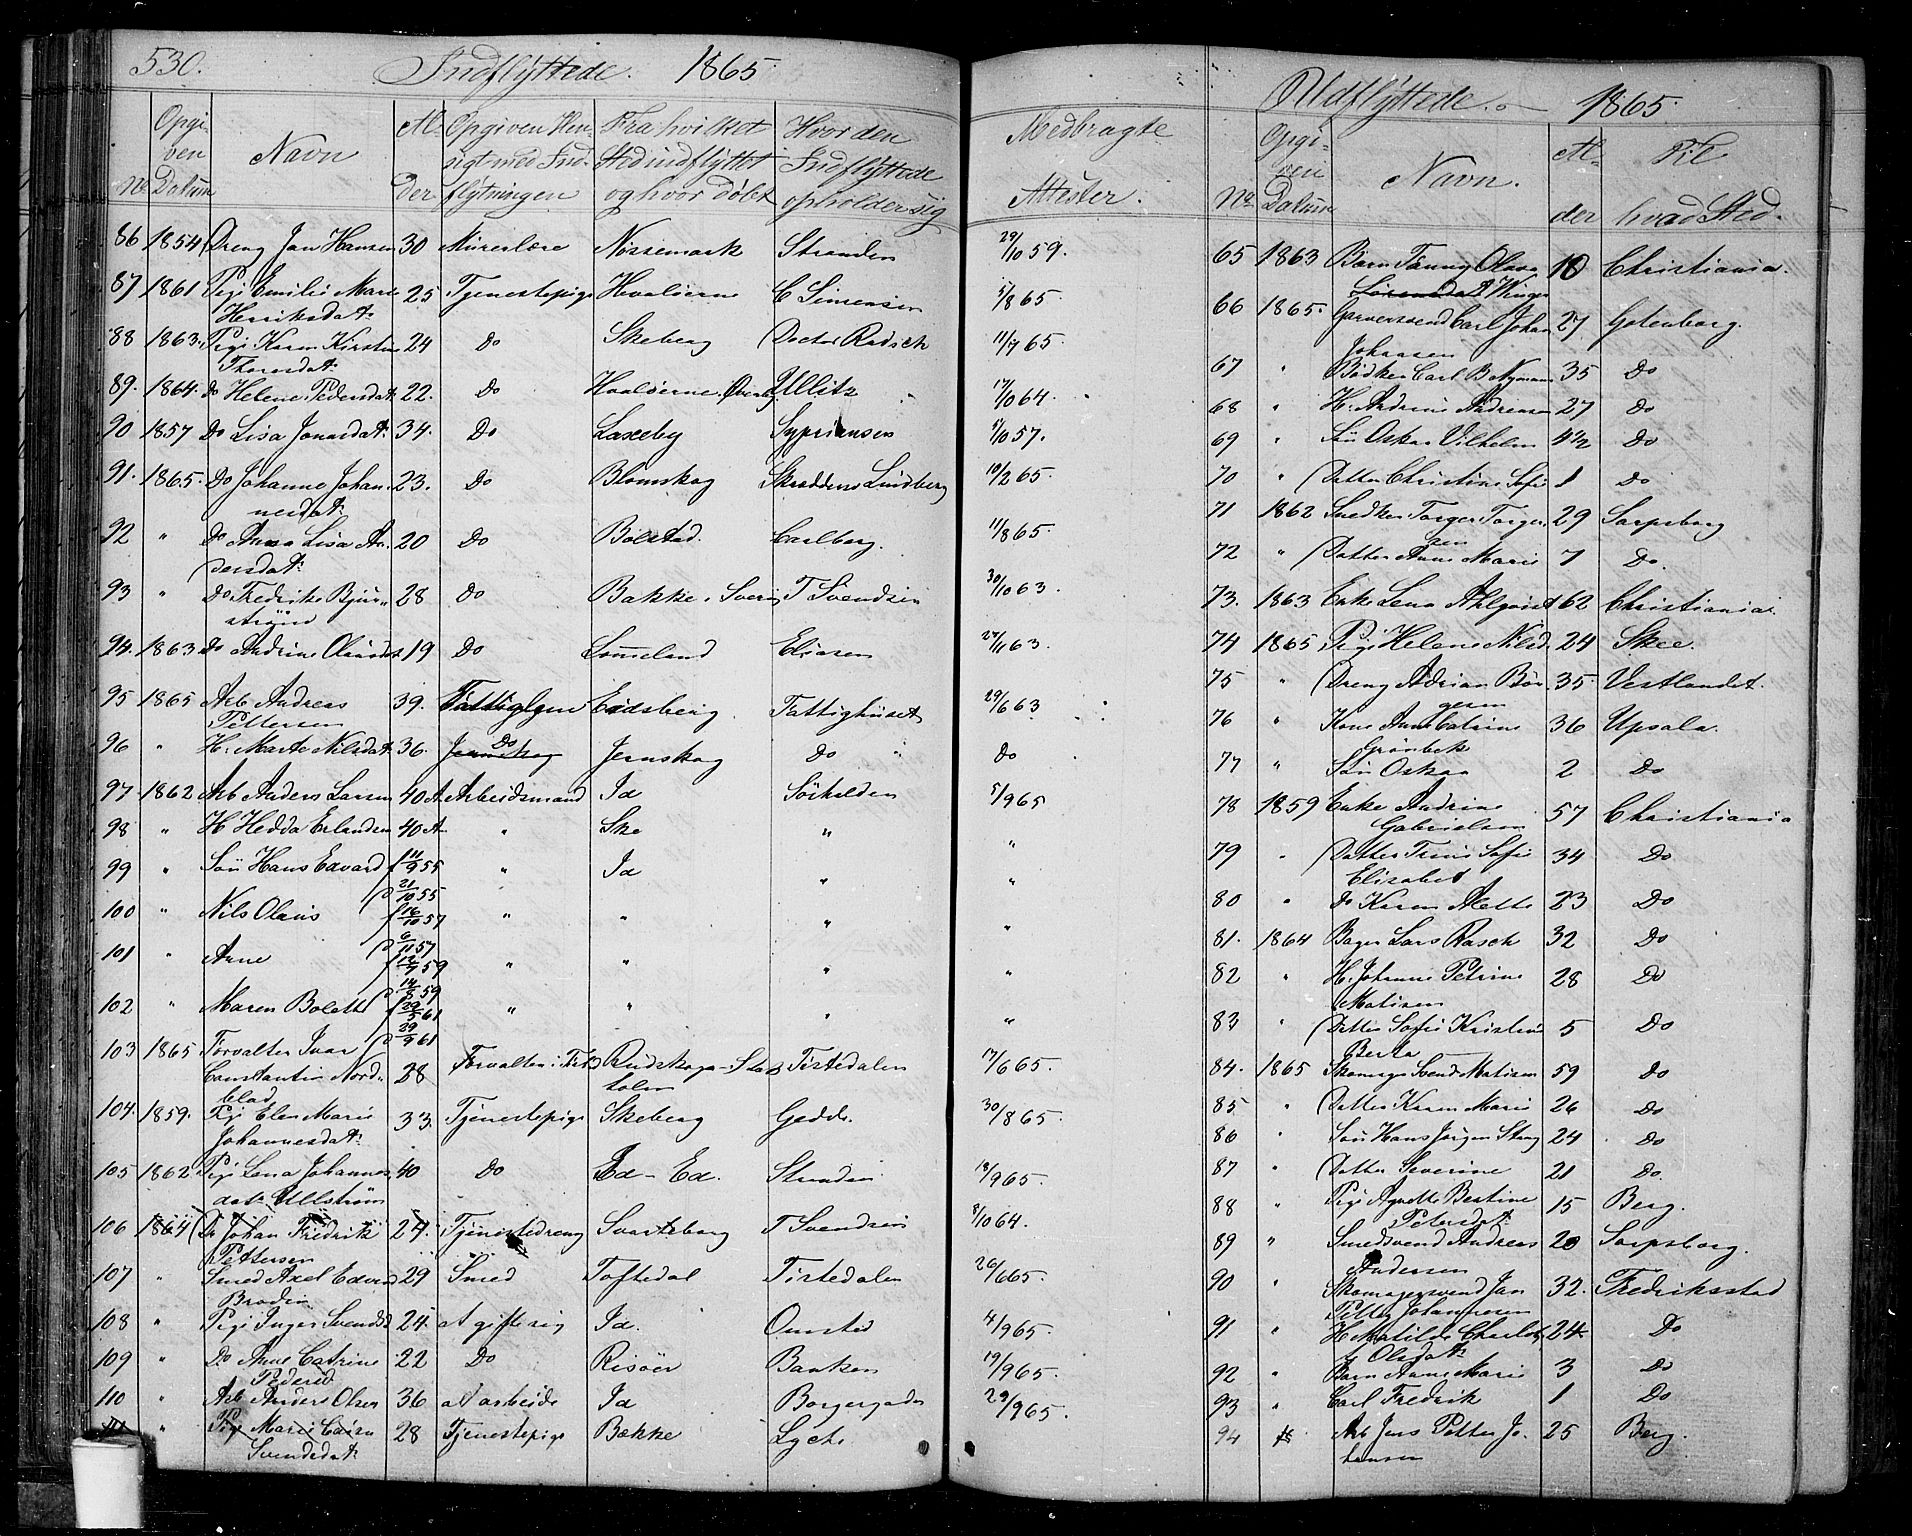 530.
Indflyttede. 1865
No | Opgiven Datum | Navn | Alder | Opgiven Hensigt med Indflytningen | Fra hvilket Sted indflyttet og hvor døbt | Hvor den Indflyttede opholder sig | Medbragte Attester.
86 1854 Dreng Jan Hansen 30 Murerlære Nössemark Stranden 29/10 59.
87 1861 Pige Emilie Marie 25 Tjenestepige Hvaløerne C Simensen 5/8 65
Henriksdat:
88 1863 Pige Karen Kirstine 24 Do Skeberg Doctor Radsch 11/7 65
Thoresdat:
89. 1864. Do Helene Pedersdat: 22. Do Hvaløerne Ullitz 17/10 64.
90 1857 Do Lisa Jonasdat: 34. Do Laxeby Syprinsen 5/10 57.
91. 1865. Do Johanne Johan 23. Do Blomskog Skrædder Lindberg 10/2 65.
nesdat:
92 " Do Anna Lisa An 20 Do Bolstad. Carlberg. 11/8 65.
dersdat:
93 " Do Fredrike Bjur 28 Do Bakke, Sverig T Svendsen 30/10 63.
ström
94. 1863 Do Andrine Olausdt 19 Do Sømeland Eliasen 27/11 63.
95 1865 Arb Andreas 39. Fattiglem Eidsberg Fattighuset 29/6 63
Pettersen
96 " H. Marte Nilsdat: 36. Do Jernskog Do Do
97 1862 Arb Anders Larsen 40 A Arbeidsmand Id Sörhelden 5/9 65
98 " H Hedda Erlandsen 40 A " Ske " "
99 " Søn Hans Edvard f 11/9 55 " Id " "
D 21/10 55
100 " Nils Olaus f 16/10 57 " " " "
D 6/11 57
101 " Anne f 12/7 59 " " " "
D 14/8 59
102 " Maren Bolette f 22/5 61 " " " "
D 29/9 61
103 1865 Forvalter Ivar 28 Forvalter i Tist Rudskoga - Stok Tistedalen 17/6 65.
Constantin Nord holm
blad
104. 1859. Pige Elen Marie 33 Tjenestepige Skeberg Gedde. 30/8 65.
Johannesdat:
105 1862 Pige Lena Johannes 40 Do Ed - Ed. Stranden 18/9 65.
dat: Ullström
106 1864 Dr Johan Fredrik 24. Tjenestedreng Svarteborg T Svendsen 8/10 64.
Pettersen
107 " Smed Axel Edvard 29 Smed Toftedal Tistedalen 26/6 65.
Brodin
108 " Pige Inger Svendsd 24. at gifte sig Id. Onsted 4/9 65.
109 " Do Anne Catrine 22 Do Risöer Banken 19/9 65.
Pedersd
110 " Arb Anders Olsen 36 at arbeide Id Borgergaden 29/9 65.
111 " Pige Marie Carin 28 Tjenestepige Bække Lyche
Svendsdat:
Udflyttede. 1865.
No | Opgiven Datum | Navn. | Alder | Til hvad Sted.
65 1863 Barn Fanny Olava 10 Christiania.
Sörensdat Winger
66 1865. Garversvend Carl Johan 27 Gotenborg.
Johansen
67 " Bødker Carl B Nyman 35 Do
68 " H. Andrine Andersen 27 Do
69 " Søn Oskar Vilhelm 4 1/2 Do
70 " Datter Christine Sofie 1 Do
71 1862 Snedker Torger Torger 29 Sarpsborg
sen
72 " Datter Anne Marie 7 Do.
73. 1863 Enke Lena Ahlqvist 62 Christiania.
74 1865 Pige Helene Nilsd 24 Skee.
75 " Dreng Adrian Bör 35. Vestlandet.
gesen
76 " Kone Anna Catrine 36 Upsala.
Grönbek
77 " Søn Oskar 2 Do
78 1859 Enke Andrine 57 Christiania
Gabrielsen
79 " Datter Trine Sofie 34 Do
Elisabet
80 " Do Karen Mette 23 Do
81. 1864 Bager Lars Rasch 32 Do
82 " H. Johanne Petrine 28 Do
Matisen
83 " Datter Sofie Kristine 5 Do
Berta
84. 1865 Skomager Svend Matisen 59 Do
85 " Datter Karen Marie 26 Do
86 " Søn Hans Jörgen Stang 24 Do
87 " Datter Severine 21 Do.
88 " Pige Agnette Bertine 15 Berg.
Petersdat:
89 " Smedsvend Andreas 20 Sarpsborg.
Andersen
90 " Skomagersvend Jan 32. Fredriksstad
Petter Johannesen
91 " H. Matilde Charlotte 24 Do
Olsdat:
92 " Barn Anne Marie 3 Do
93 " Carl Fredrik 1 Do
94 Arb Jens Petter Jo 25 Berg.
hansen